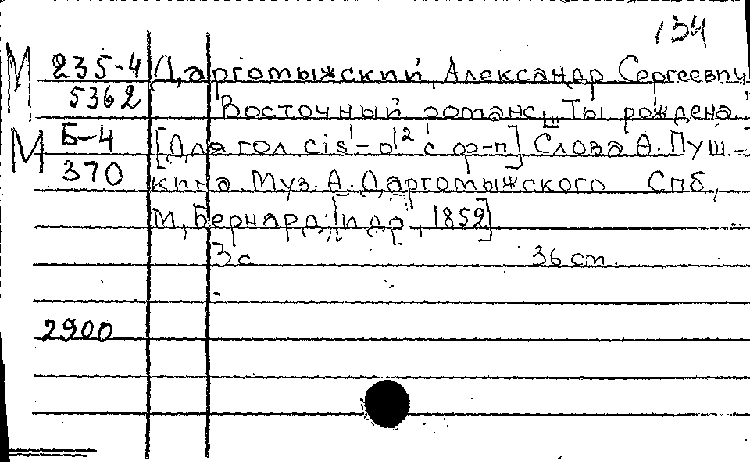 134
М 235-4 Даргомыжский, Александр Сергеевич
5362 Восточный романс „Ты рождена"
М Б-4 [Для гол. cis¹-d² с ф-п] Слова А. Пуш-
370 кина Муз. А. Даргомыжского Спб.,
М, Бернард, [и др., 1852]
3 с 36 cm.
2900